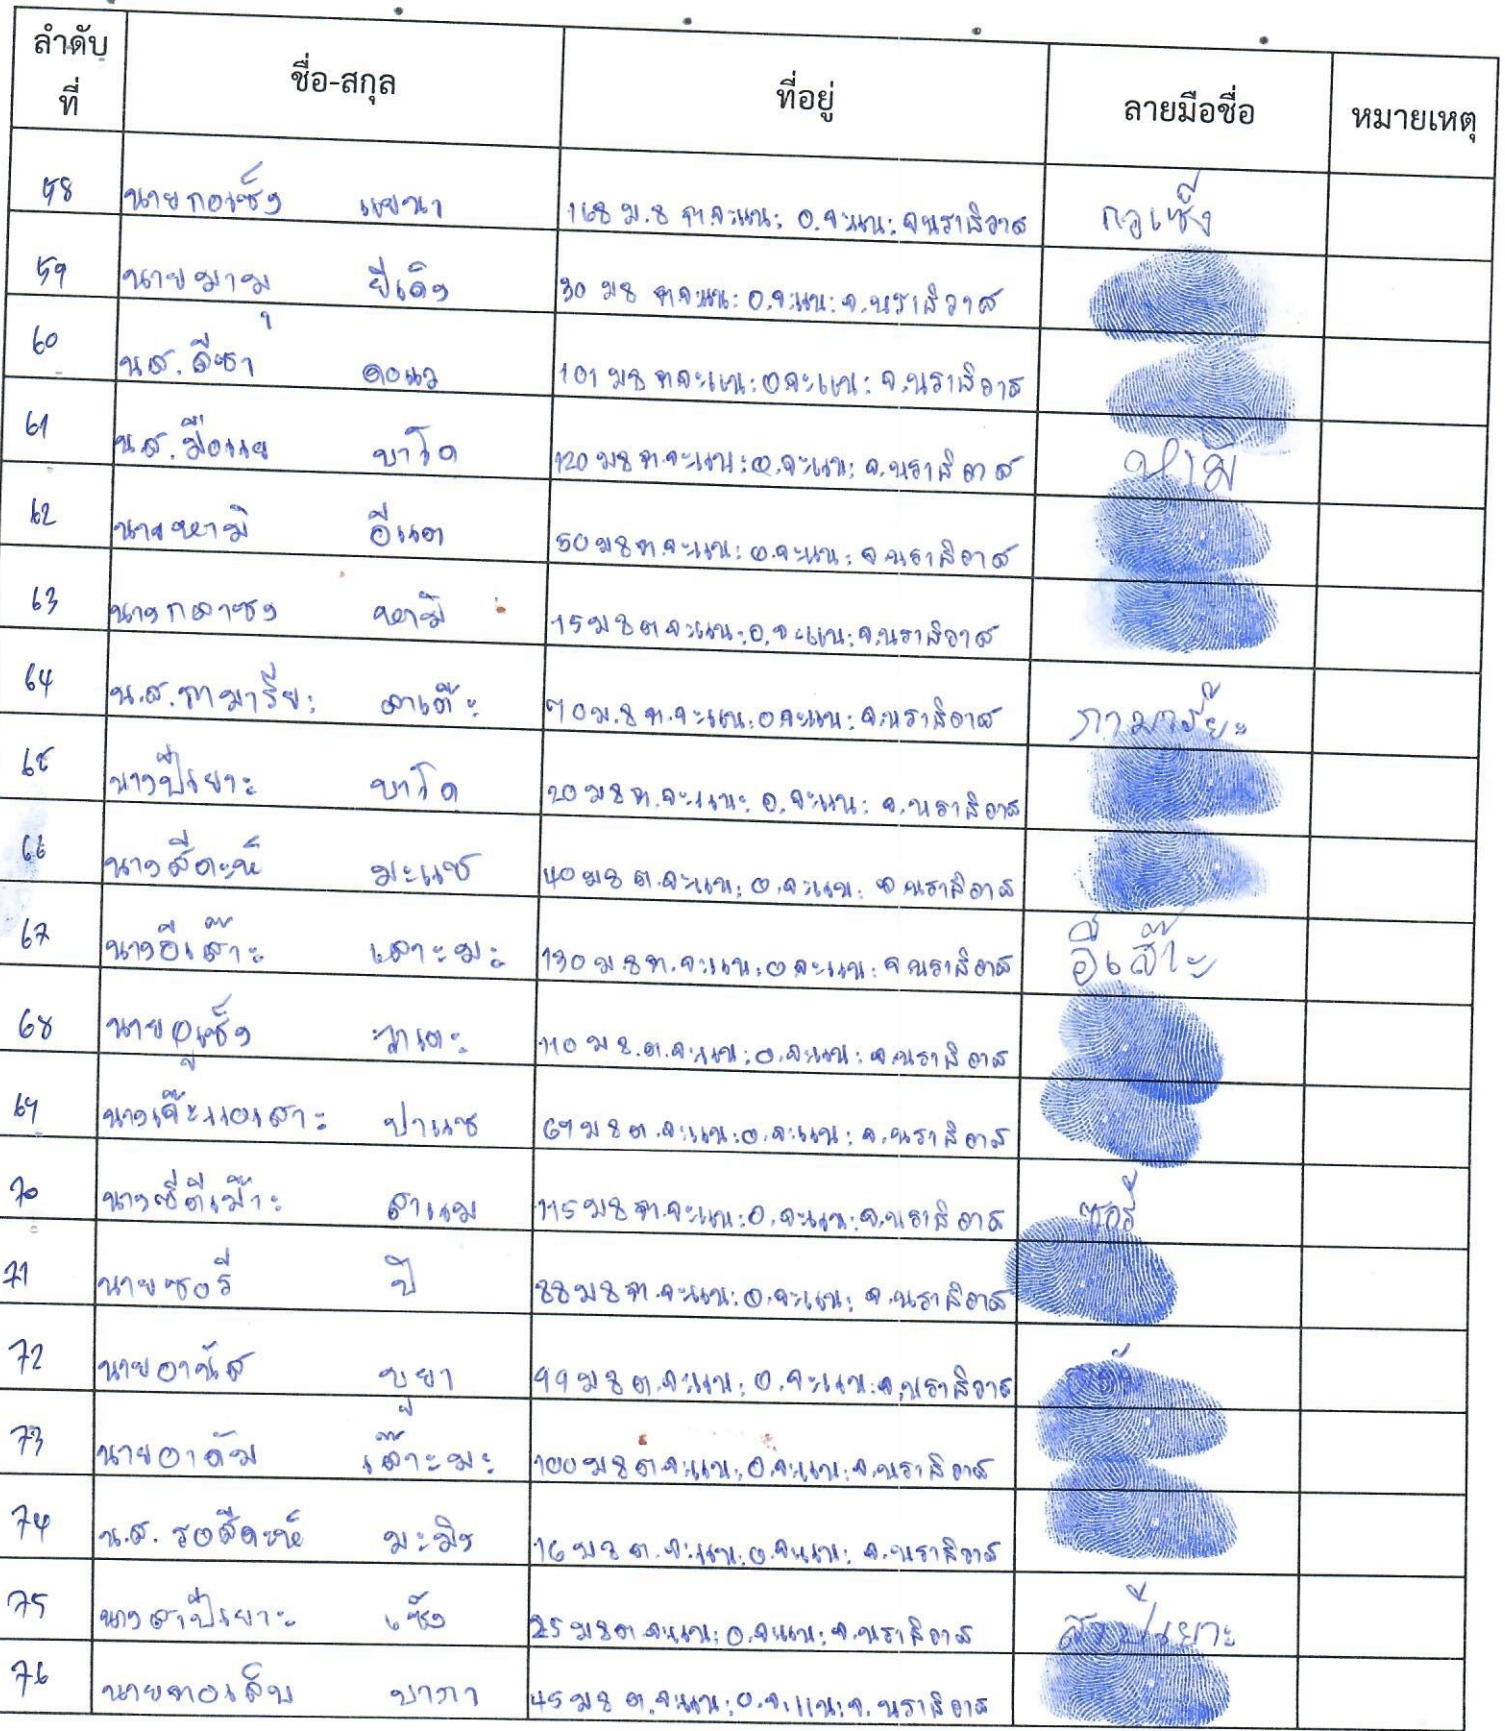 ลำดับที่ ชื่อ-สกุล ที่อยู่ ลายมือชื่อ หมายเหตุ
58 นายกอเซ็ง แยนา 168 ม.8 ต.จะแนะ อ.จะแนะ จ.นราธิวาส กอเซ็ง
59 นายมามุ ยีเด็ง 30 ม8 ต.จะแนะ อ.จะแนะ จ.นราธิวาส
60 น.ส.ลีซา ดอแว 101 ม8 ต.จะแนะ อ.จะแนะ จ.นราธิวาส
61 น.ส.มือแย บาโด 120 ม8 ต.จะแนะ อ.จะแนะ จ.นราธิวาส หามิ
62 นายหามิ อีแต 50 ม8 ต.จะแนะ อ.จะแนะ จ.นราธิวาส
63 นางกลาซง หามิ 15 ม8 ต.จะแนะ อ.จะแนะ จ.นราธิวาส
64 น.ส.กามารียะ ลาเต๊ะ 90 ม.8 ต.จะแนะ อ.จะแนะ จ.นราธิวาส กามารีย๊ะ
65 นางปีเยาะ บาโด 20 ม8 ต.จะแนะ อ.จะแนะ จ.นราธิวาส
66 นางสีตะห์ มะแซ 40 ม8 ต.จะแนะ อ.จะแนะ จ.นราธิวาส
67 นางอีเส๊าะ เลาะมะ 130 ม8 ต.จะแนะ อ.จะแนะ จ.นราธิวาส อีเส๊าะ
68 นายอูเซ็ง วาเตะ 110 ม8 ต.จะแนะ อ.จะแนะ จ.นราธิวาส
69 นางเจ๊ะแอเสาะ ปาแซ 69 ม8 ต.จะแนะ อ.จะแนะ จ.นราธิวาส
70 นางซีตีเม๊าะ สาแม 115 ม8 ต.จะแนะ อ.จะแนะ จ.นราธิวาส ซอรี
71 นายซอรี ปิ 88 ม8 ต.จะแนะ อ.จะแนะ จ.นราธิวาส
72 นายอานัส บูยา 99 ม8 ต.จะแนะ อ.จะแนะ จ.นราธิวาส
73 นายอาดัม เด๊าะมะ 100 ม8 ต.จะแนะ อ.จะแนะ จ.นราธิวาส
74 น.ส. รอสีดะห์ มะมิง 16 ม8 ต.จะแนะ อ.จะแนะ จ.นราธิวาส
75 นางสาปีเยาะ เซ็ง 25 ม8 ต.จะแนะ อ.จะแนะ จ.นราธิวาส สาปีเยาะ
76 นายหอเส็บ บากา 45 ม8 ต.จะแนะ อ.จะแนะ จ.นราธิวาส